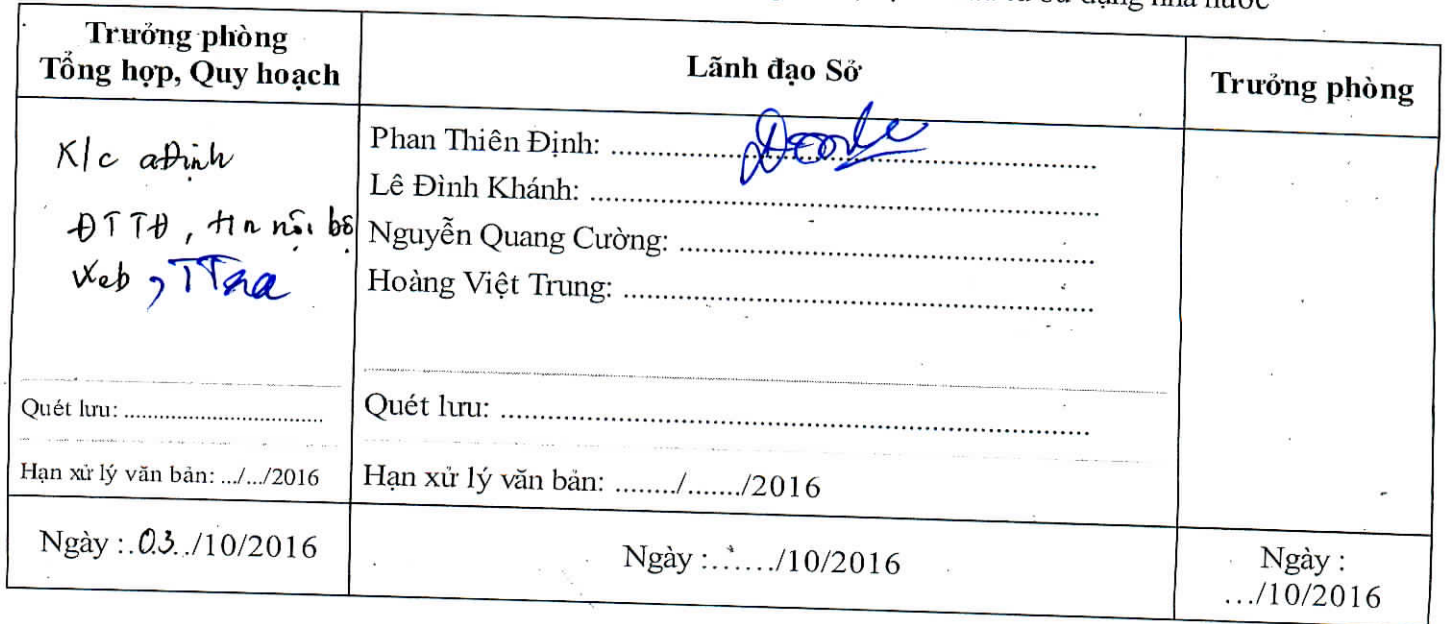 nhà nước
Trưởng phòng
Tổng hợp, Quy hoạch
Lãnh đạo Sở
Trưởng phòng
K/c aĐịnh
ĐTTĐ, tin nội bộ
Web, TTra
Phan Thiên Định: ..........
Lê Đình Khánh: ..........
Nguyễn Quang Cường: ..........
Hoàng Việt Trung: ..........
Quét lưu: ..........
Hạn xử lý văn bản: .../.../2016
Quét lưu: ..........
Hạn xử lý văn bản: ......../......./2016
Ngày :.03../10/2016
Ngày :......./10/2016
Ngày :
.../10/2016